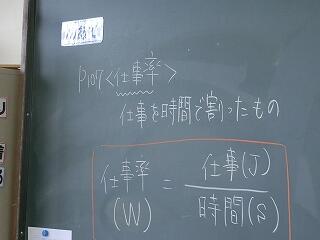 P107<仕事率>
仕事を時間で割ったもの
仕事率(W) = 仕事(J) / 時間(s)